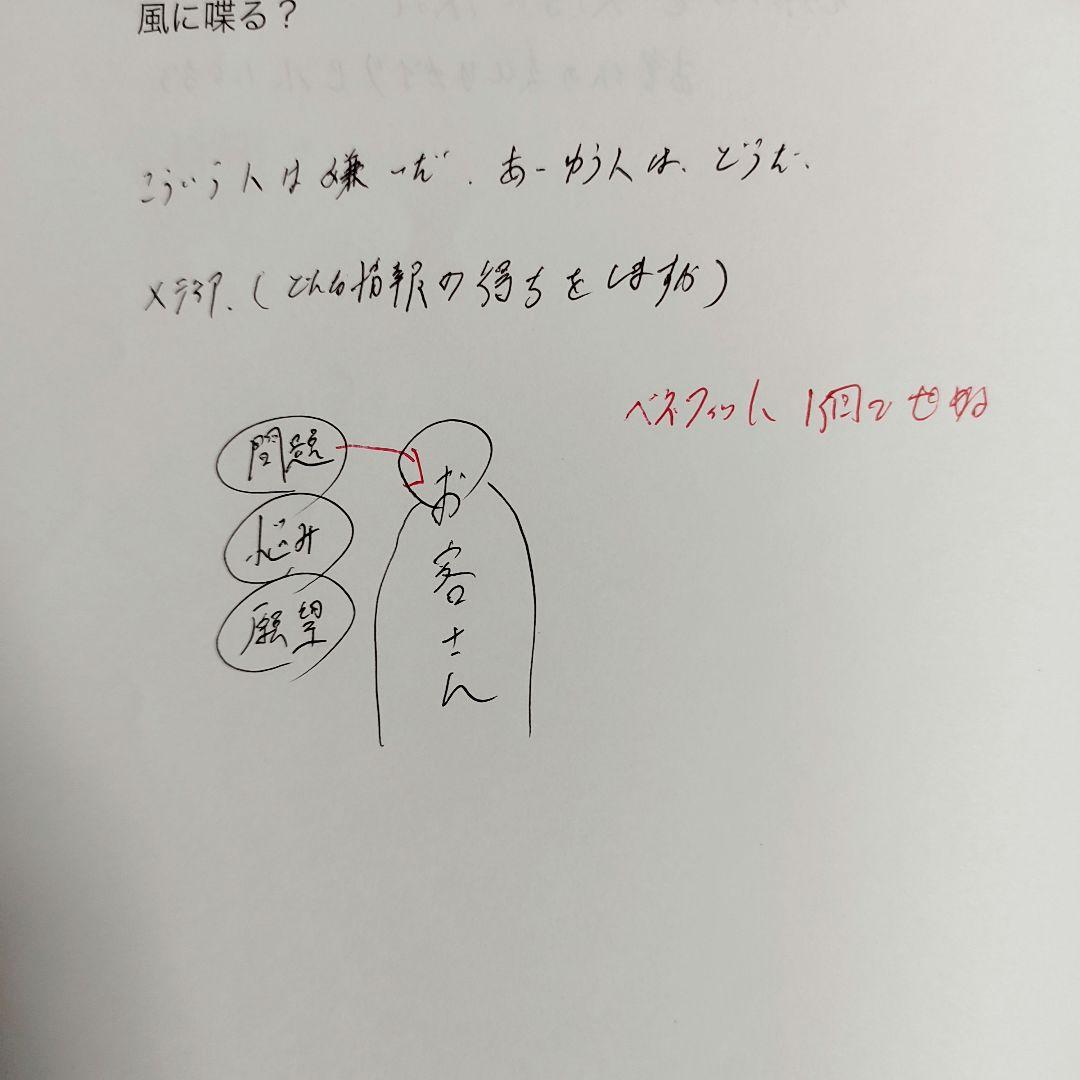 風に喋る？
こういう人は嫌いだ、あーゆう人は、どうだ、
メディア、(どんな情報の得方をしますか)
ベネフィット 1個で
問題
悩み
願望
お客さん